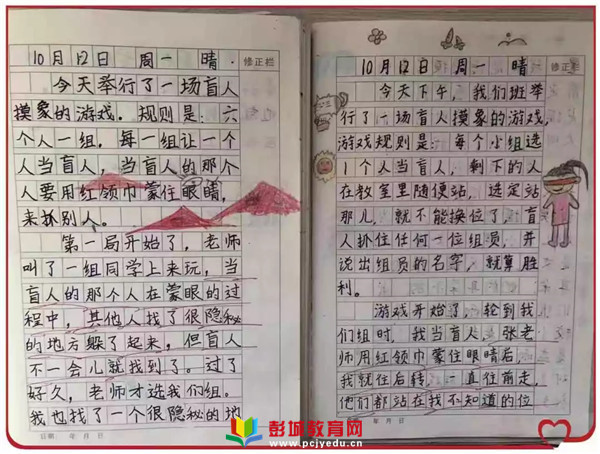 10月12日 周一 晴
修正栏
今天举行了一场盲人
摸象的游戏. 规则是: 六
个人一组, 每一组让一个
人当盲人, 当盲人的那个
人要用红领巾蒙住眼睛,
来抓别人。
第一局开始了, 老师
叫了一组同学上来玩, 当
盲人的那个人在蒙眼的过
程中, 其他人找了很隐秘
的地方躲了起来, 但盲人
不一会儿就找到了. 过了
好久, 老师才选我们组.
我也找了一个很隐秘的地
年 月 日
10月12日 周一 晴
修正栏
今天下午, 我们班举
行了一场盲人摸象的游戏,
游戏规则是: 每个小组选
1个人当盲人, 剩下的人
在教室里随便站, 选定站
那儿, 就不能换位了, 盲
人抓住任何一位组员, 并
说出组员的名字, 就算胜
利。
游戏开始了, 轮到我
们组时, 我当盲人, 张老
师用红领巾蒙住眼睛后,
我就往后转, 一直往前走,
他们都站在我不知道的位
年 月 日
彭城教育网
www.pcjyedu.cn